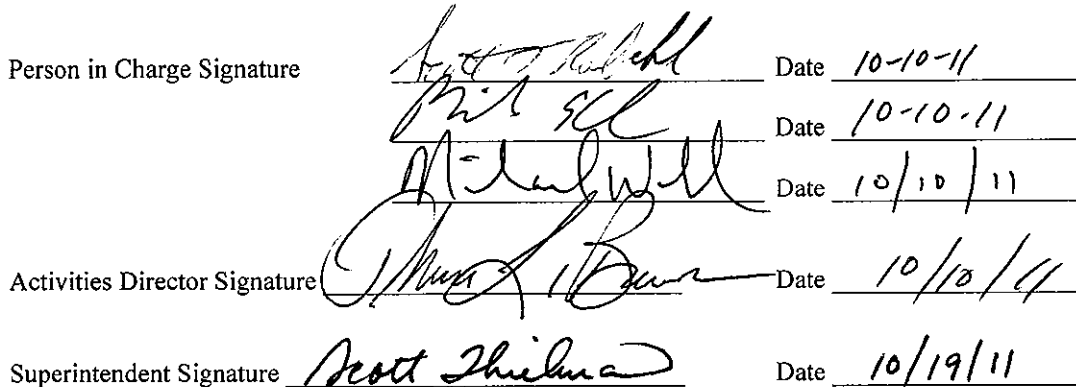 Person in Charge Signature Scott Date 10-10-11
Date 10-10-11
Michael Date 10/10/11
Activities Director Signature Date 10/10/11
Superintendent Signature Scott Thielman Date 10/19/11